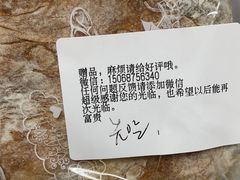 赠品，麻烦请给好评哦。
微信：15068756340
任何问题反馈请添加微信
超级感谢您的光临，也希望以后能再
次光临。
富贵